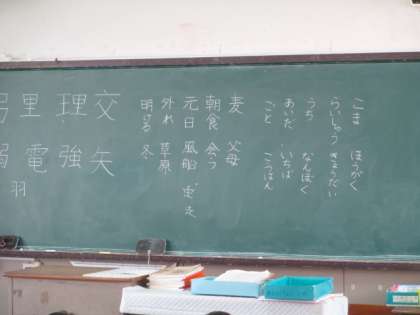 こま　ほうがく
らいしゅう　きょうだい
うち　なんぼく
あいだ　いちば
ごと　ごはん
麦　父母
朝食　会う
元日　風船　走
外れ　草原
明るい　冬
交　矢
理　強
里　電　羽
弓　弱